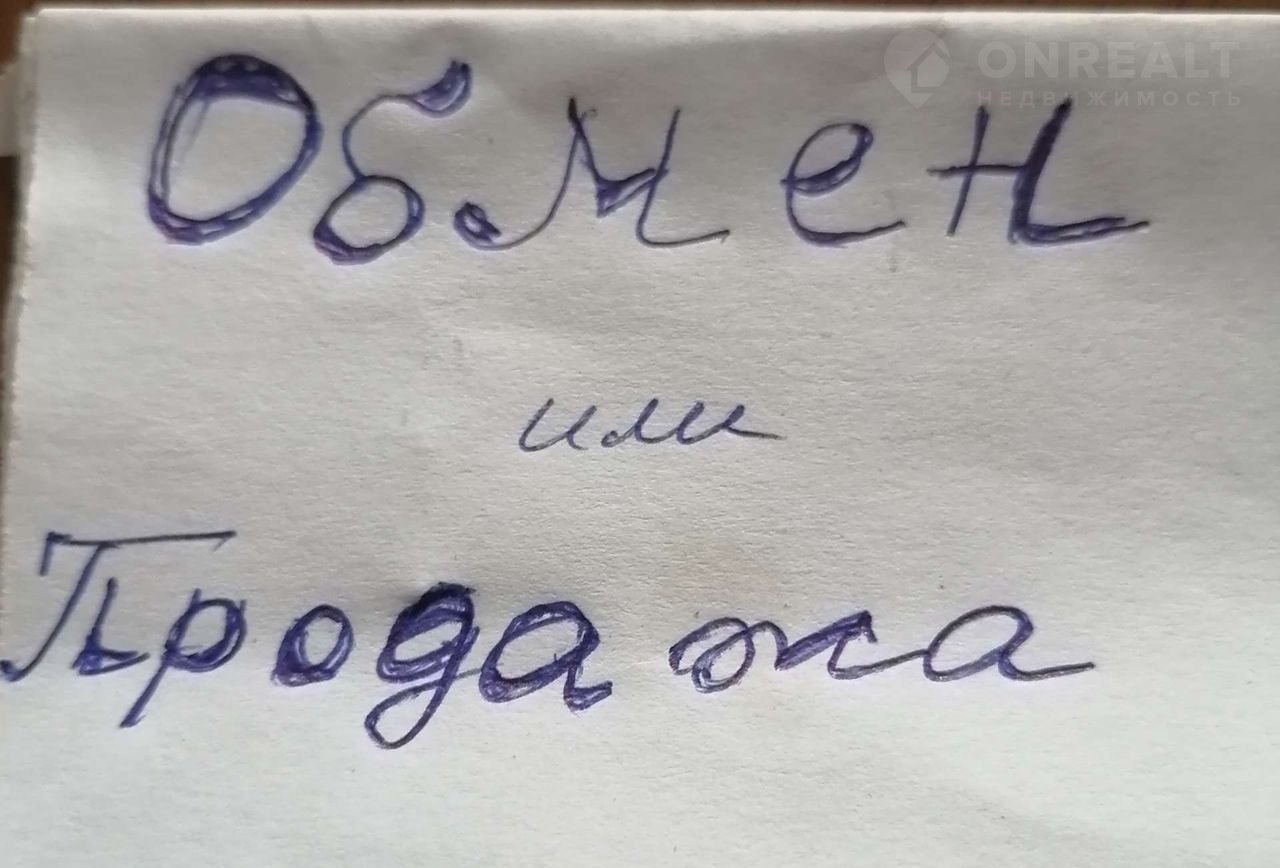 ONREALT
НЕДВИЖИМОСТЬ
Обмен
или
Продажа